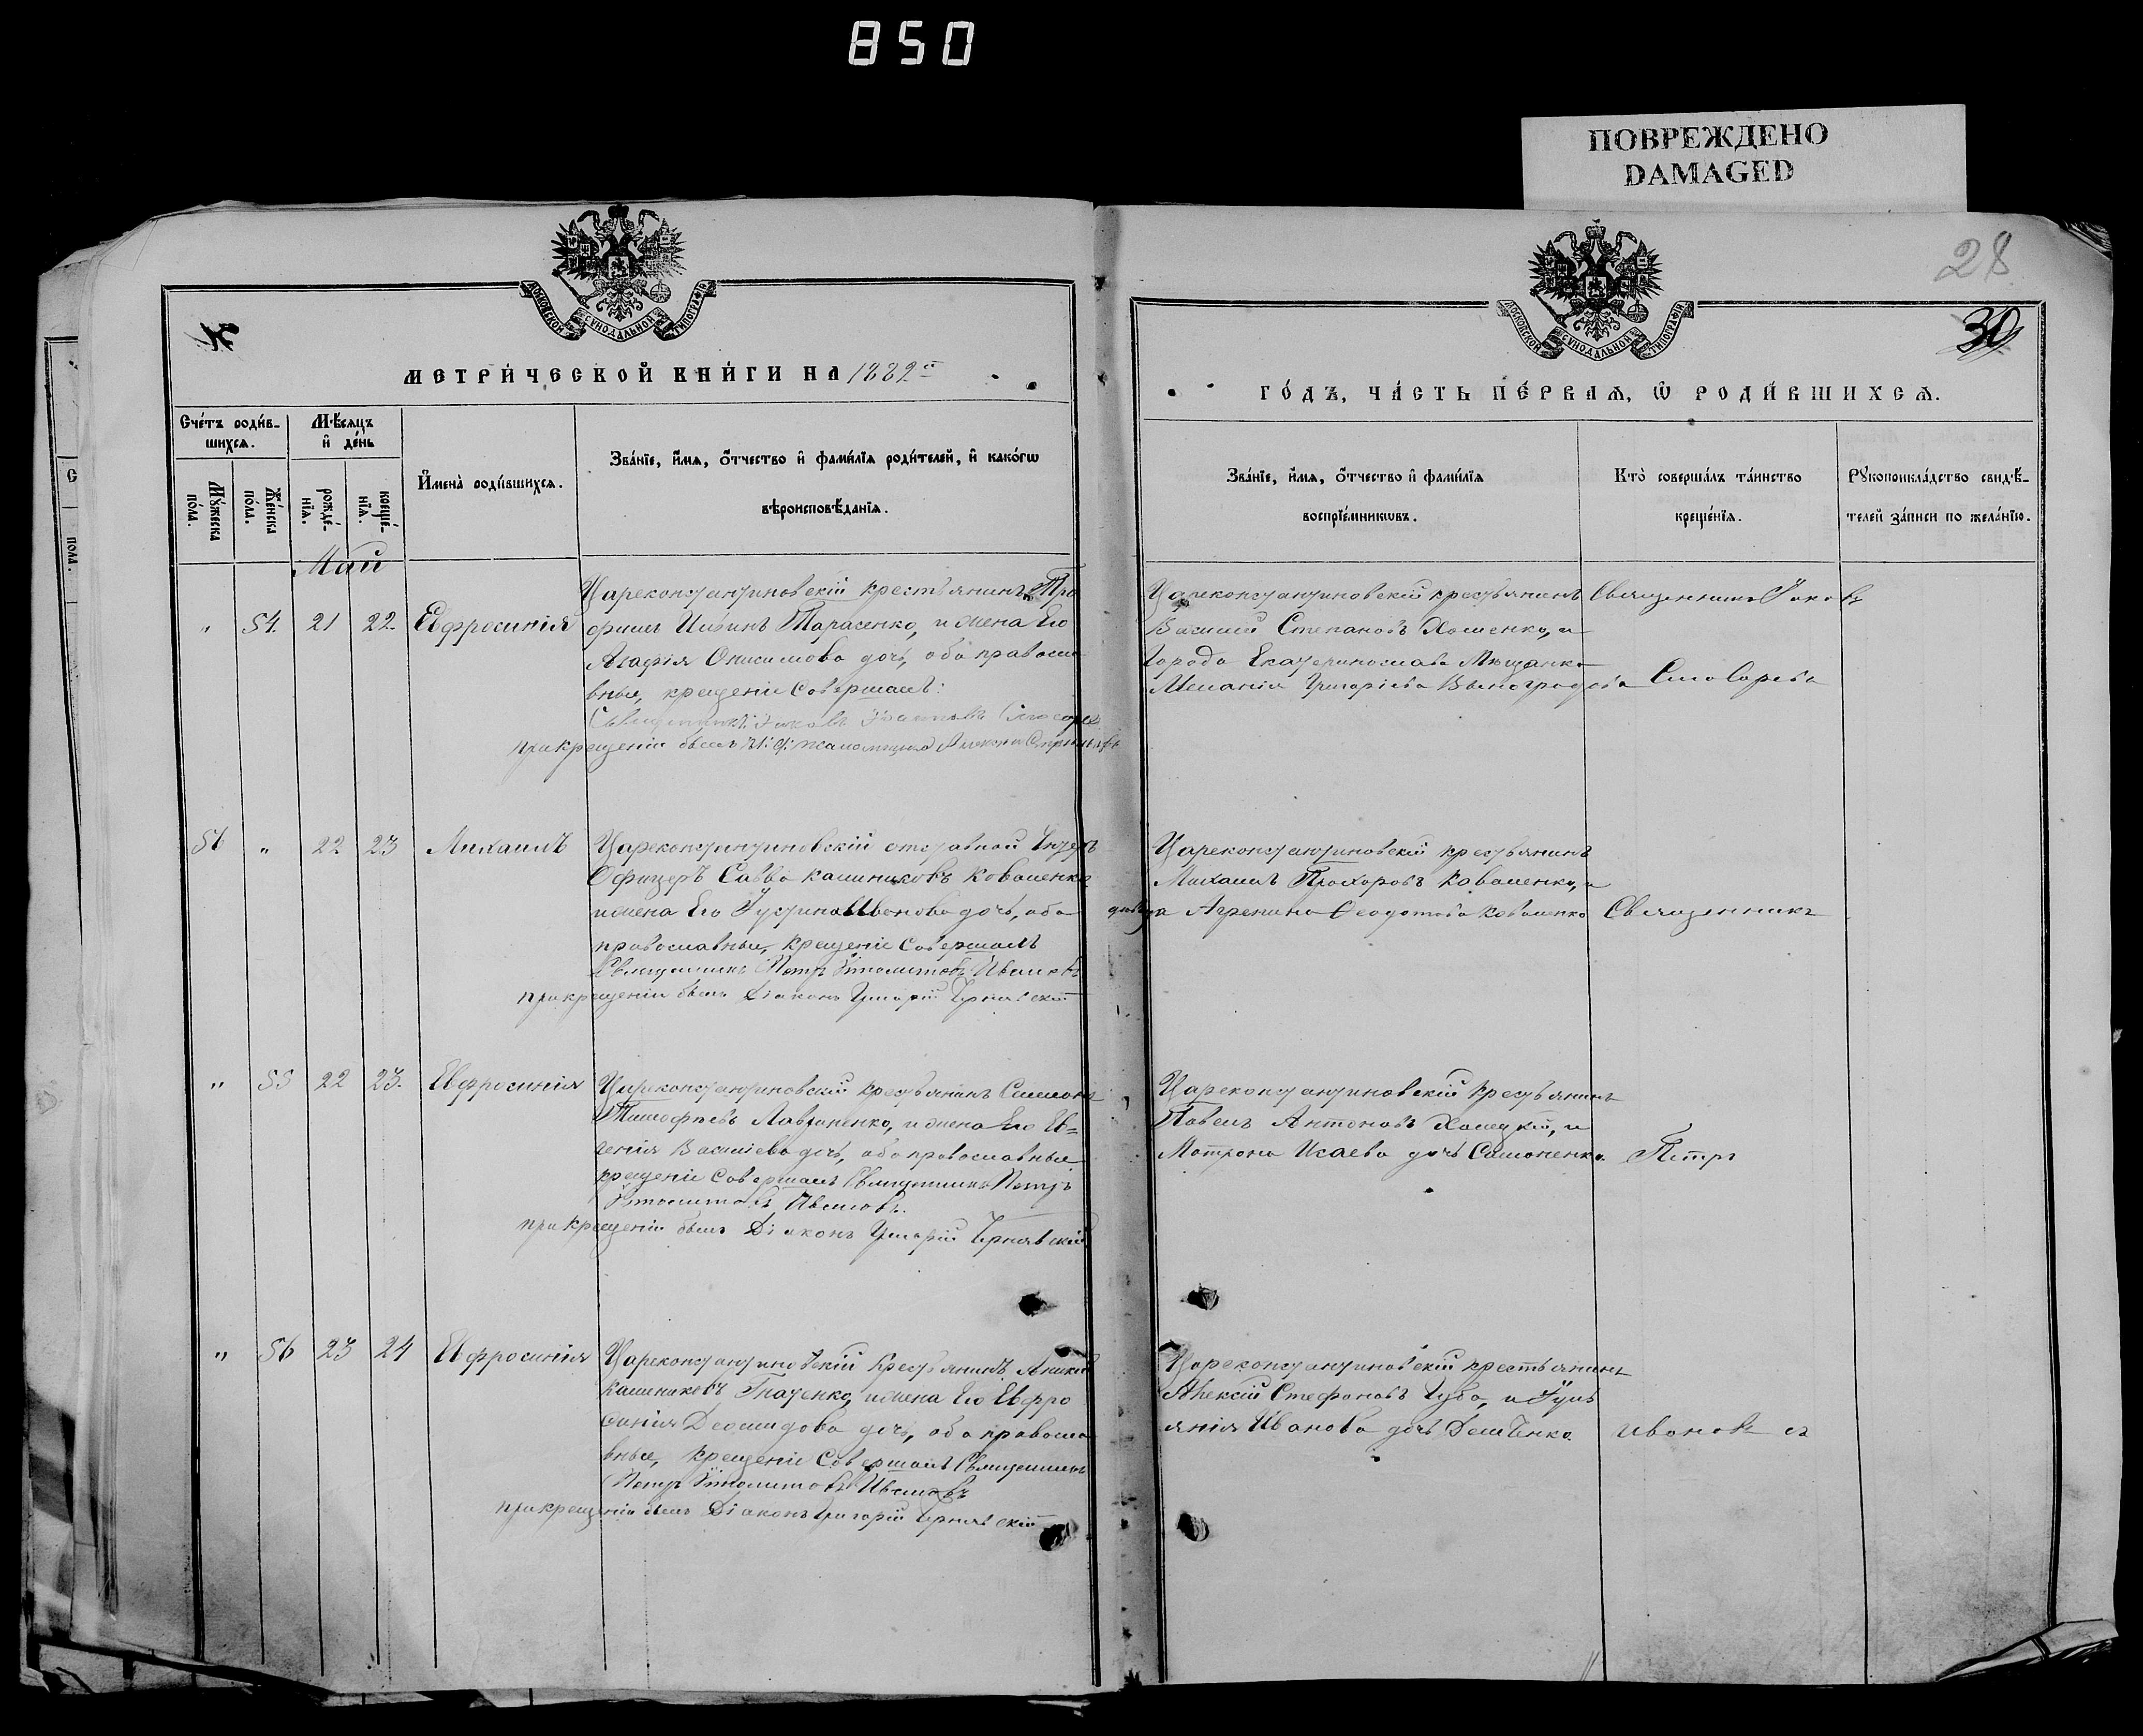 850
ПОВРЕЖДЕНО
DAMAGED
28
30
МОСКОВСКОЙ СѴНОДАЛЬНОЙ ТИПОГРАФІИ
МОСКОВСКОЙ СѴНОДАЛЬНОЙ ТИПОГРАФІИ
МЕТРИ́ЧЕСКОЙ КНИ́ГИ НА 1882
ГО́ДЪ, ЧА́СТЬ ПЕ́РВАЯ, Ѡ҆ РОДИ́ВШИХСЯ.
Сче́тъ роди́в-
шихся.
Мѣ́сяцъ
и҆ де́нь
Му́жеска
по́ла.
Же́нска
по́ла.
рожде́-
нїѧ.
креще́-
нїѧ.
И҆мена̀ роди́вшихся.
Зва́нїе, и҆́мя, ѻ҆́тчество и҆ фами́лїя роди́телей, и҆ како́гѡ
вѣроисповѣ́данїя.
Зва́нїе, и҆́мя, ѻ҆́тчество и҆ фами́лїя
воспрїе́мникѡвъ.
Кто̀ соверша́лъ та́инство
креще́нїя.
Рꙋкоприкла́дство свидѣ́-
телей за́писи по жела́нїю.
Май
" 54. 21 22. Евфросинія
Цареконстантиновскій крестьянинъ Тро
фимъ Тарасенко, и жена Его
Агафія Онисимова дочь, оба правосла
вные, крещеніе Совершалъ:
при крещеніи былъ
Цареконстантиновскій крестьянинъ
Василій Степановъ Хоменко, и
города Екатеринослава Мѣщанка
Меланія Григоріева Виноградова
Священникъ Іаковъ
51 " 22 23 Михаилъ
Цареконстантиновскій отставной Унтеръ
Офицеръ Савва Калиниковъ Коваленко
и жена Его Іустина Иванова дочь, оба
православные, крещеніе Совершалъ
Священникъ Петръ Ипполитовъ Ивановъ
при крещеніи былъ Діаконъ Григорій Чернявскій
Цареконстантиновскій крестьянинъ
Михаилъ Прохоровъ Коваленко, и
дѣвица Агрепина Феодотова Коваленко
Священникъ
" 55 22 23. Евфросинія
Цареконстантиновскій крестьянинъ Симонъ
Тимофѣевъ Лавриненко, и жена Его Ев=
генія Василіева дочь, оба православные
крещеніе Совершалъ Священникъ Петръ
Ипполитовъ Ивановъ.
при крещеніи былъ Діаконъ Григорій Чернявскій
Цареконстантиновскій крестьянинъ
Павелъ Антоновъ и
Матрона Исаева дочь Симоненко.
Петръ
" 56 23 24 Евфросинія
Цареконстантиновскій крестьянинъ
Калиниковъ Гнатенко, и жена Его Евфро
синія Деомидова дочь, оба правосла
вные, крещеніе Совершалъ Священникъ
Петръ Ипполитовъ Ивановъ
при крещеніи былъ Діаконъ Григорій Чернявскій
Цареконстантиновскій крестьянинъ
Алексій Стефановъ Чубъ, и Іуль
янія Иванова дочь
Ивановъ